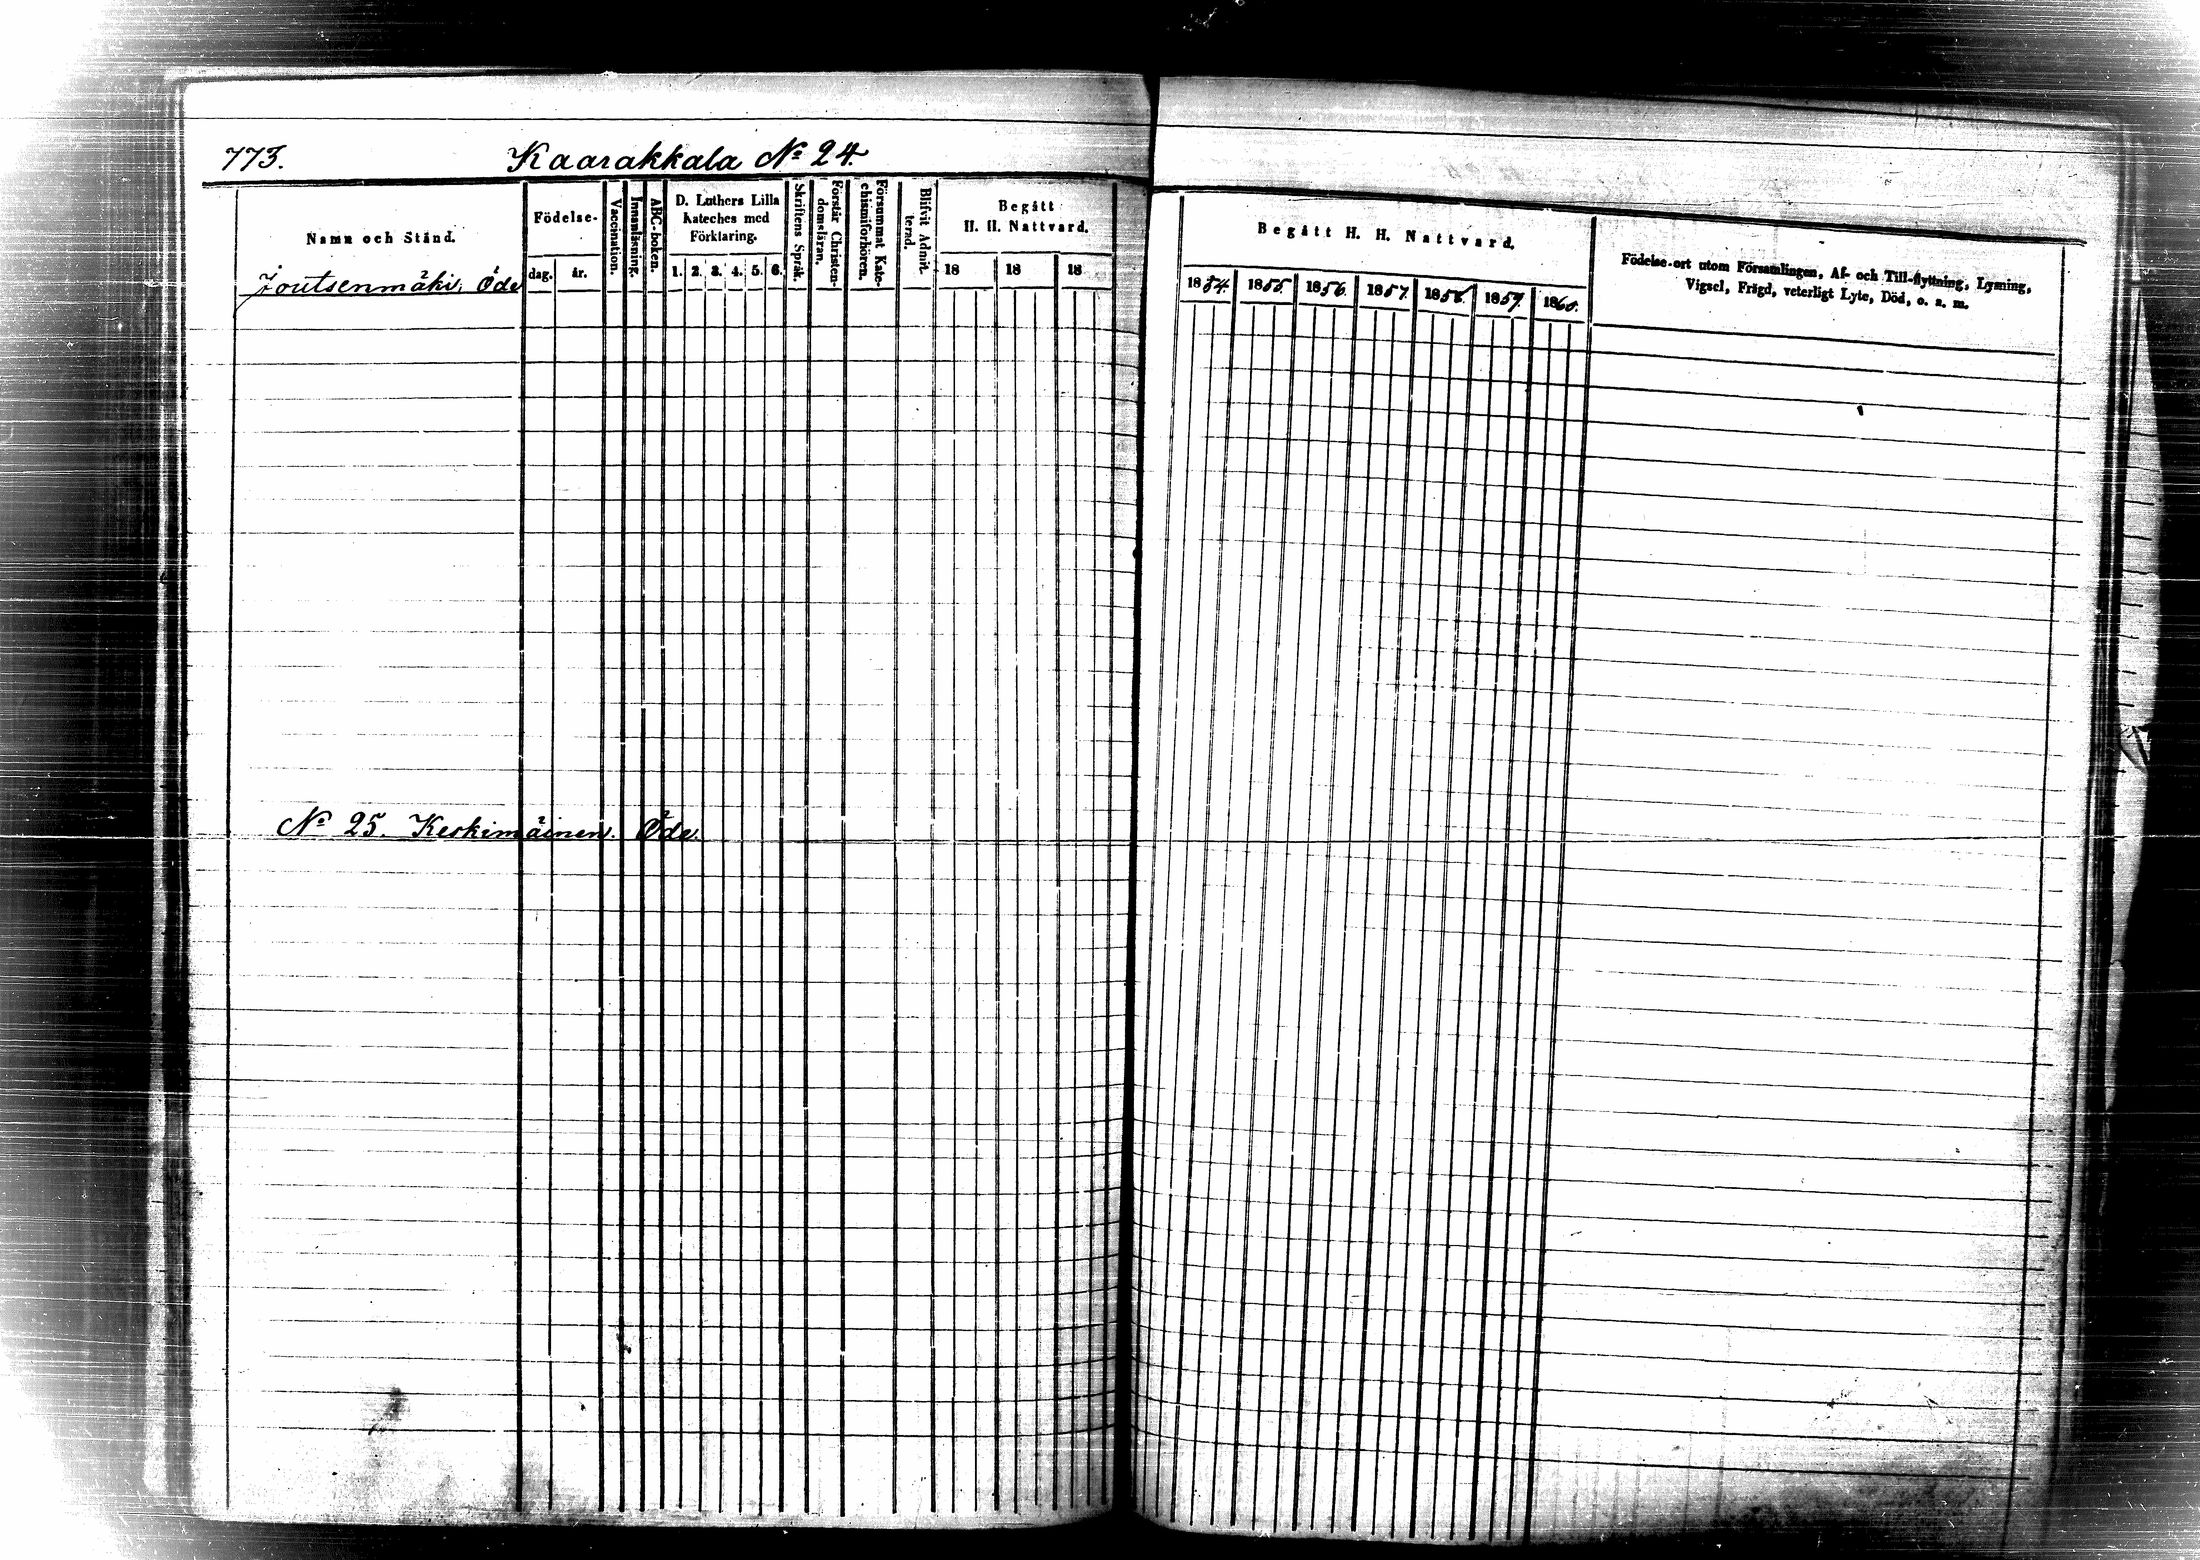 773. Kaarakkala No 24.
Namn och Stånd.
Födelse-
dag. år.
Vaccination.
Innanläsning.
ABC-boken.
D. Luthers Lilla
Kateches med
Förklaring.
1. 2. 3. 4. 5. 6.
Skriftens Språk.
Förstår Christen-
domsläran.
Försummat Kate-
chismiförhören.
Blifvit Admit-
terad.
Begått
H. H. Nattvard.
18 18 18
Joutsenmäki, Öde
No 25. Keskimäinen. Öde.
Begått H. H. Nattvard.
1854. 1855. 1856. 1857. 1858. 1859. 1860.
Födelse-ort utom Församlingen, Af- och Till-flyttning, Lysning,
Vigsel, Frägd, veterligt Lyte, Död, o. s. m.